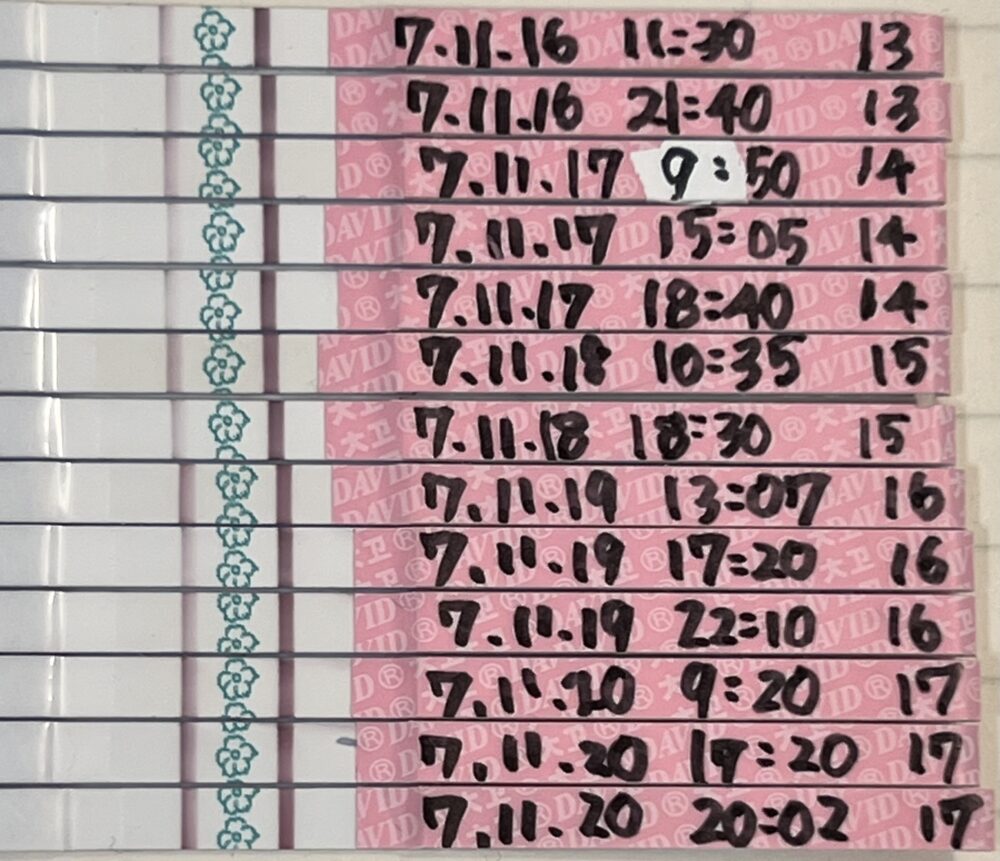 7.11.16 11:30 13
7.11.16 21:40 13
7.11.17 9:50 14
7.11.17 15:05 14
7.11.17 18:40 14
7.11.18 10:35 15
7.11.18 18:30 15
7.11.19 13:07 16
7.11.19 17:20 16
7.11.19 22:10 16
7.11.20 9:20 17
7.11.20 17:20 17
7.11.20 20:02 17
DAVID®
大卫